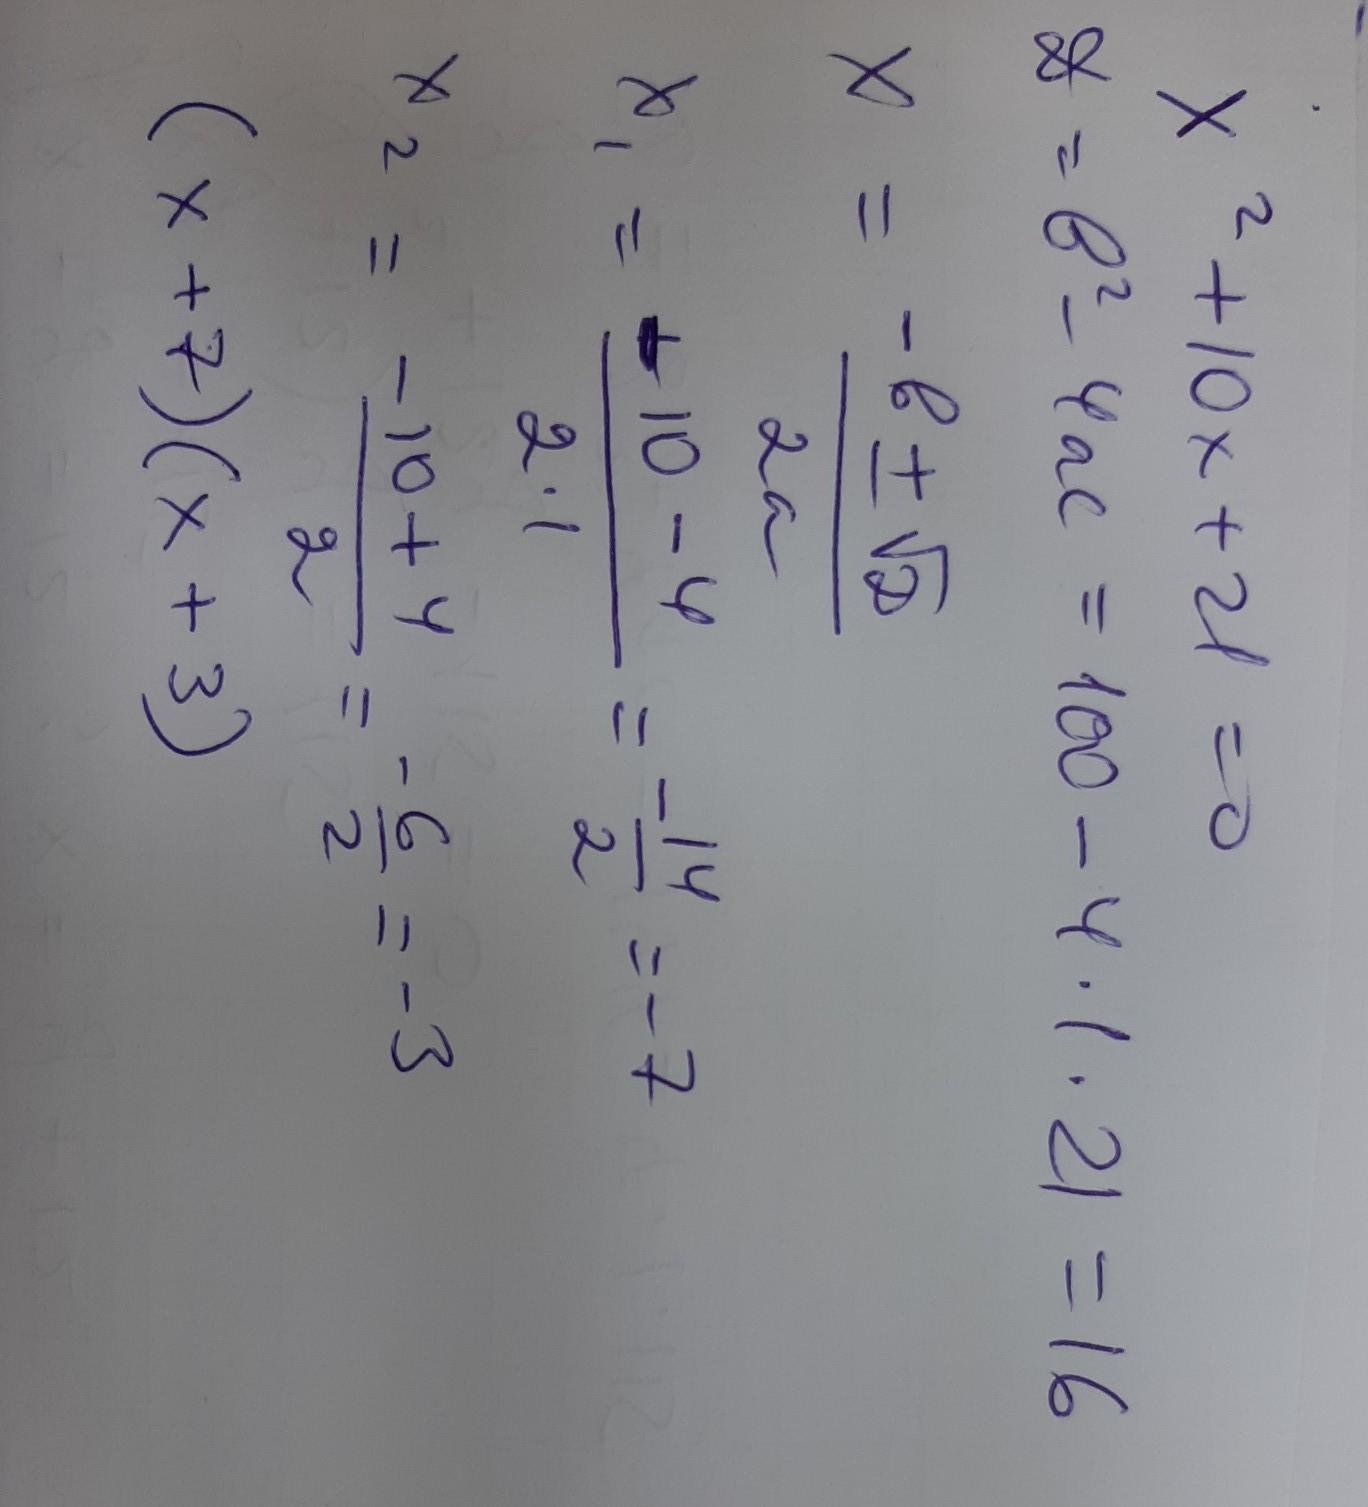 x² + 10x + 21 = 0
D = b² - 4ac = 100 - 4·1·21 = 16
x = (-b ± √D) / 2a
x₁ = (-10 - 4) / (2·1) = -14/2 = -7
x₂ = (-10 + 4) / 2 = -6/2 = -3
(x + 7)(x + 3)